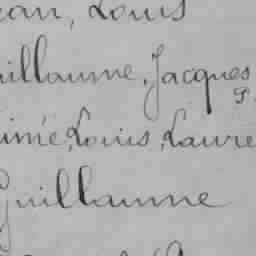 ean, Louis
uillaume, Jacques
imé, Louis, Laure
Guillaume